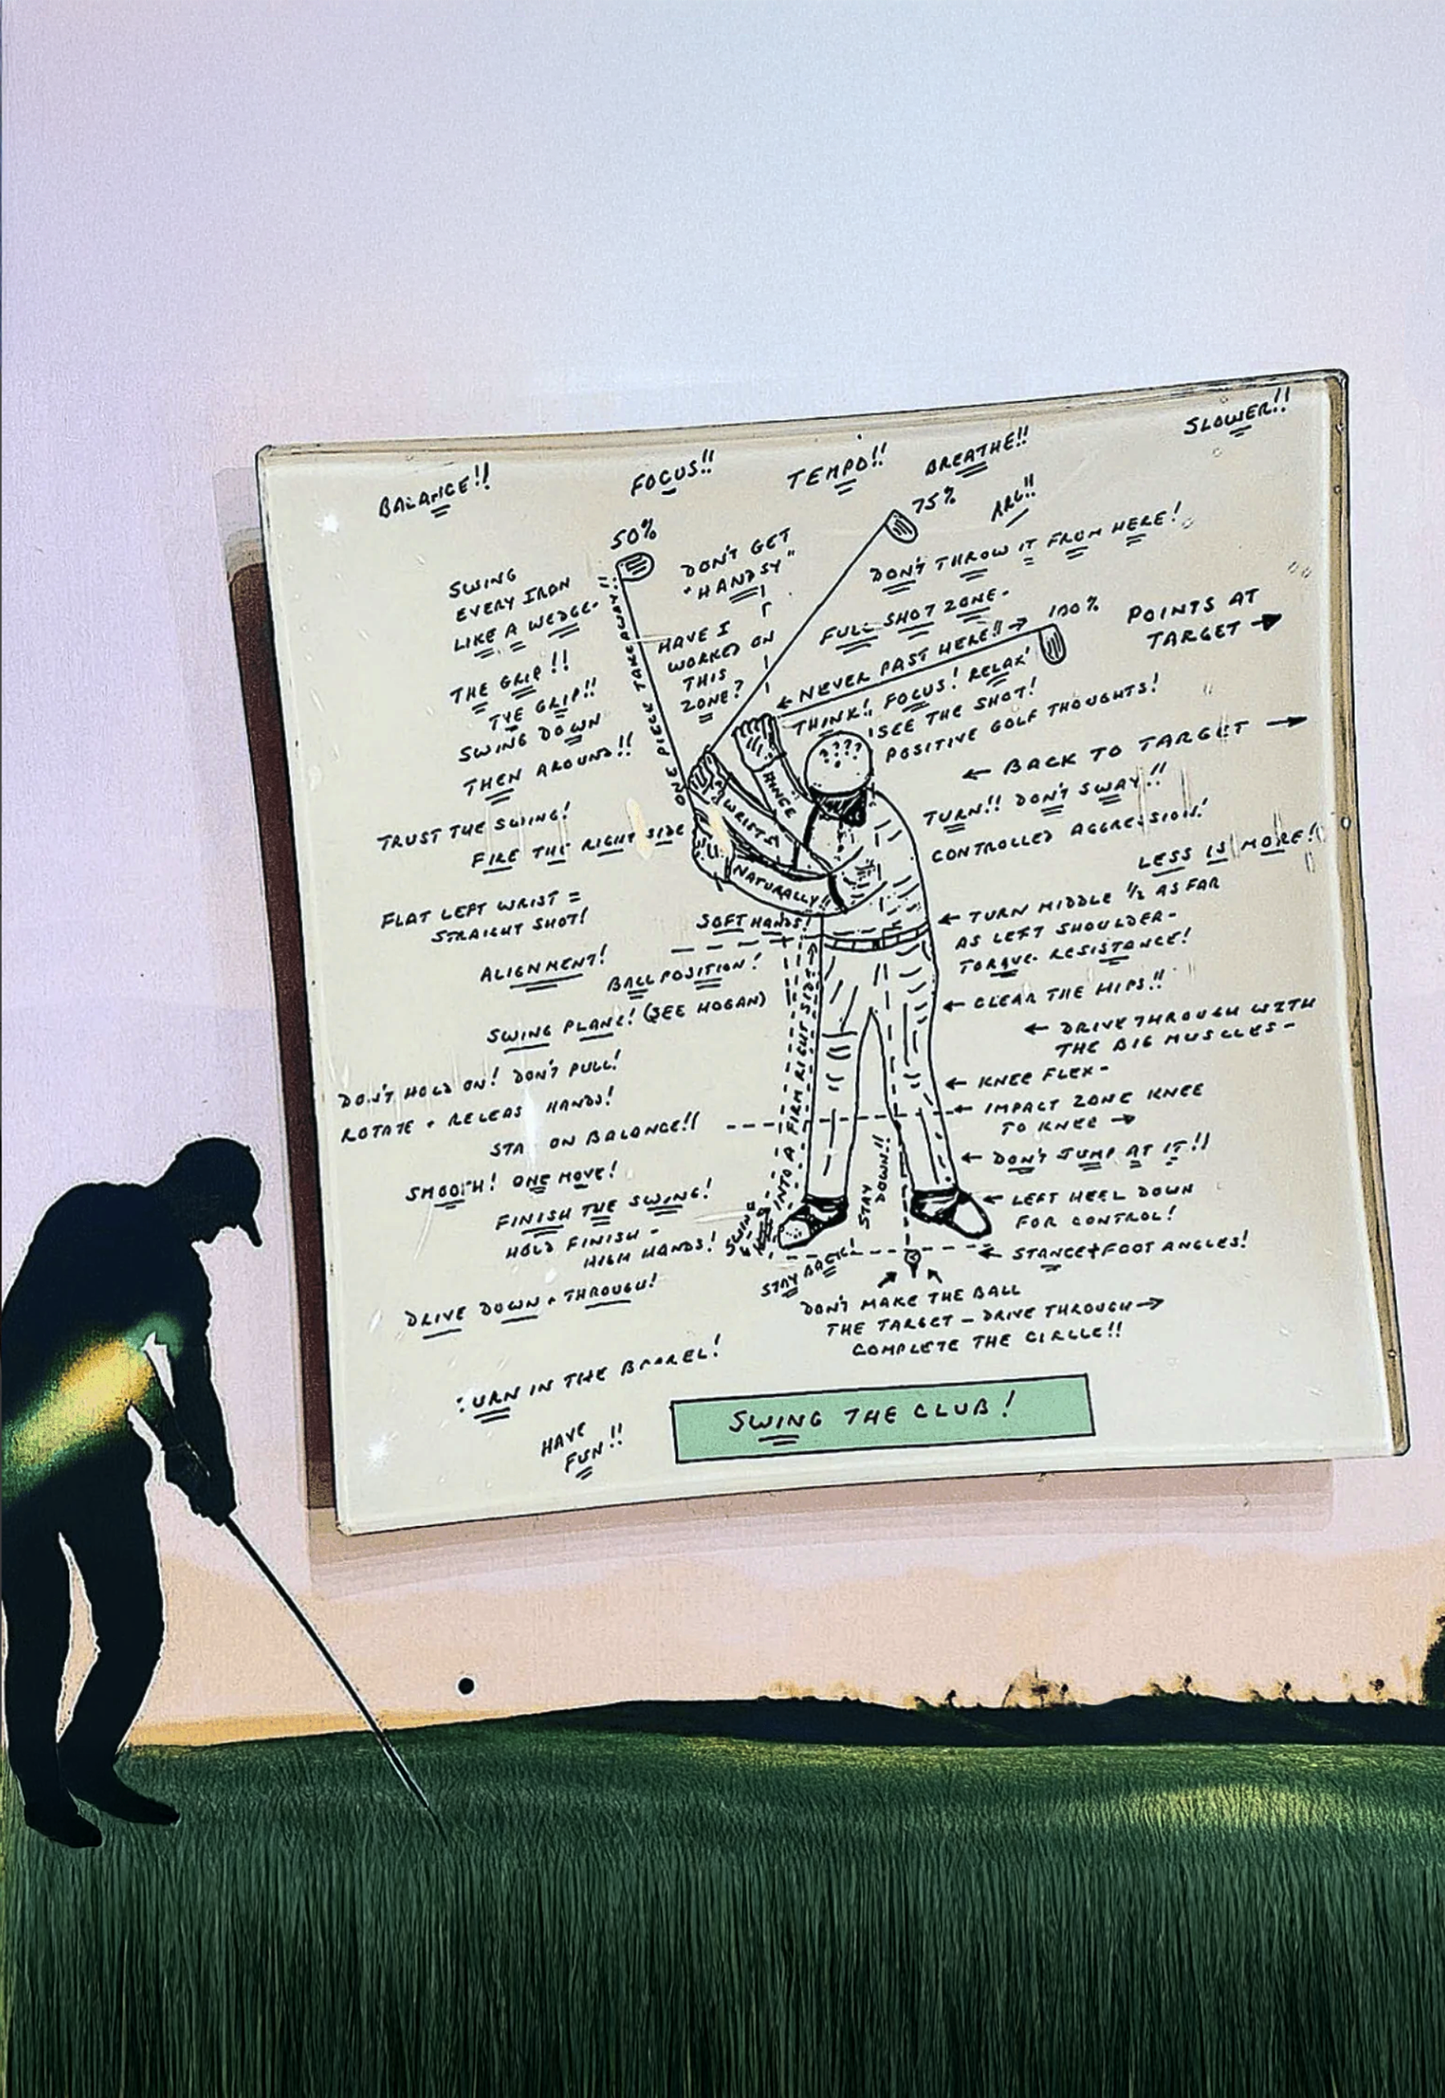 BALANCE!!
FOCUS!!
TEMPO!!
BREATHE!!
SLOWER!!
50%
75%
ARG!!
SWING
EVERY IRON
LIKE A WEDGE-
DON'T GET
"HANDSY"
DON'T THROW IT FROM HERE!
THE GRIP!!
THE GRIP!!
SWING DOWN
THEN AROUND!!
ONE PIECE TAKEAWAY!!
HAVE I
WORKED ON
THIS
ZONE?
FULL SHOT ZONE-
100%
POINTS AT
TARGET →
← NEVER PAST HERE!! →
THINK!, FOCUS! RELAX!
SEE THE SHOT!
POSITIVE GOLF THOUGHTS!
← BACK TO TARGET →
????
HINGE
WRISTS
NATURALLY!!
TRUST THE SWING!
FIRE THE RIGHT SIDE
TURN!! DON'T SWAY!!
CONTROLLED AGGRESSION!
LESS IS MORE!
FLAT LEFT WRIST =
STRAIGHT SHOT!
SOFT HANDS!
← TURN MIDDLE 1/2 AS FAR
AS LEFT SHOULDER-
TORQUE- RESISTANCE!
ALIGNMENT!
BALL POSITION!
SWING PLANE! (SEE HOGAN)
← CLEAR THE HIPS!!
← DRIVE THROUGH WITH
THE BIG MUSCLES-
DON'T HOLD ON! DON'T PULL!
ROTATE + RELEAS HANDS!
STA ON BALANCE!!
← KNEE FLEX-
← IMPACT ZONE KNEE
TO KNEE →
← DON'T JUMP AT IT!!
SMOOTH! ONE MOVE!
FINISH THE SWING!
HOLD FINISH -
HIGH HANDS!
SWING
INTO A FIRM RIGHT SIDE
STAY
DOWN!!
← LEFT HEEL DOWN
FOR CONTROL!
← STANCE + FOOT ANGLES!
STAY BACK!
DRIVE DOWN + THROUGH!
DON'T MAKE THE BALL
THE TARGET - DRIVE THROUGH →
COMPLETE THE CIRCLE!!
TURN IN THE BARREL!
HAVE
FUN!!
SWING THE CLUB!